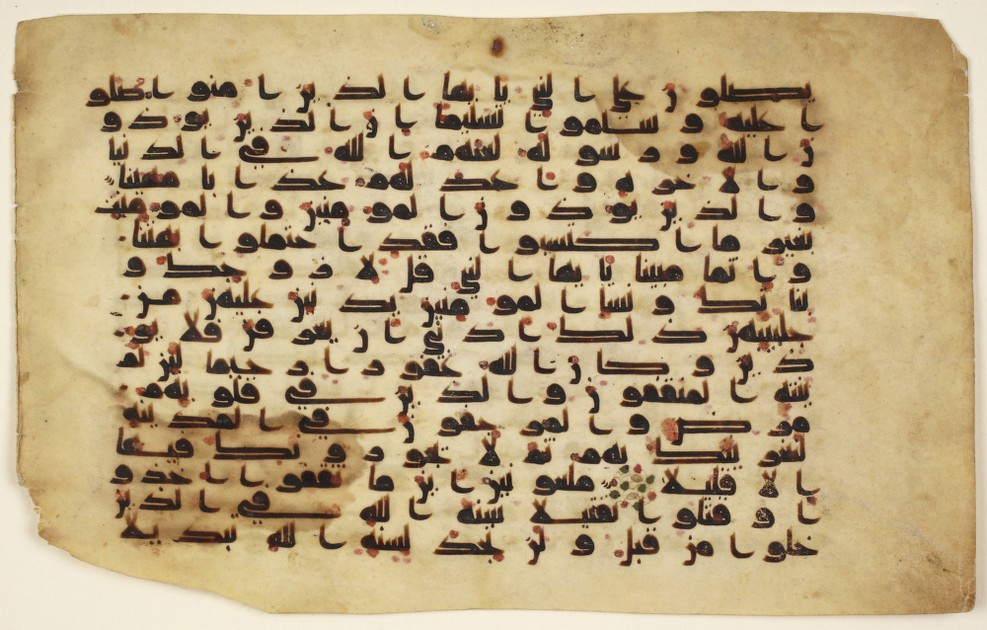 يصلون على النبى يايها الذين امنوا صلو
ا عليه وسلموا تسليما ان الذين يوذو
ن الله ورسوله لعنهم الله فى الدنيا
والاخره واعد لهم عذابا مهينا
والذين يوذون المومنين والمومنت
بغير ما اكتسبوا فقد احتملوا بهتنا
واثما مبينا يايها النبى قل لازوجك و
بنتك ونسا المومنين يدنين عليهن من
جلبيبهن ذلك ادنى ان يعرفن فلا يو
ذين وكان الله غفورا رحيما لين لم
ينته المنفقون والذين فى قلوبهم
مرض والمرجفون فى المدينه
لنغرينك بهم ثم لا يجاورونك فيها
الا قليلا ملعونين اينما ثقفوا اخذو
ا وقتلوا تقتيلا سنه الله فى الذين
خلوا من قبل ولن تجد لسنه الله تبديلا